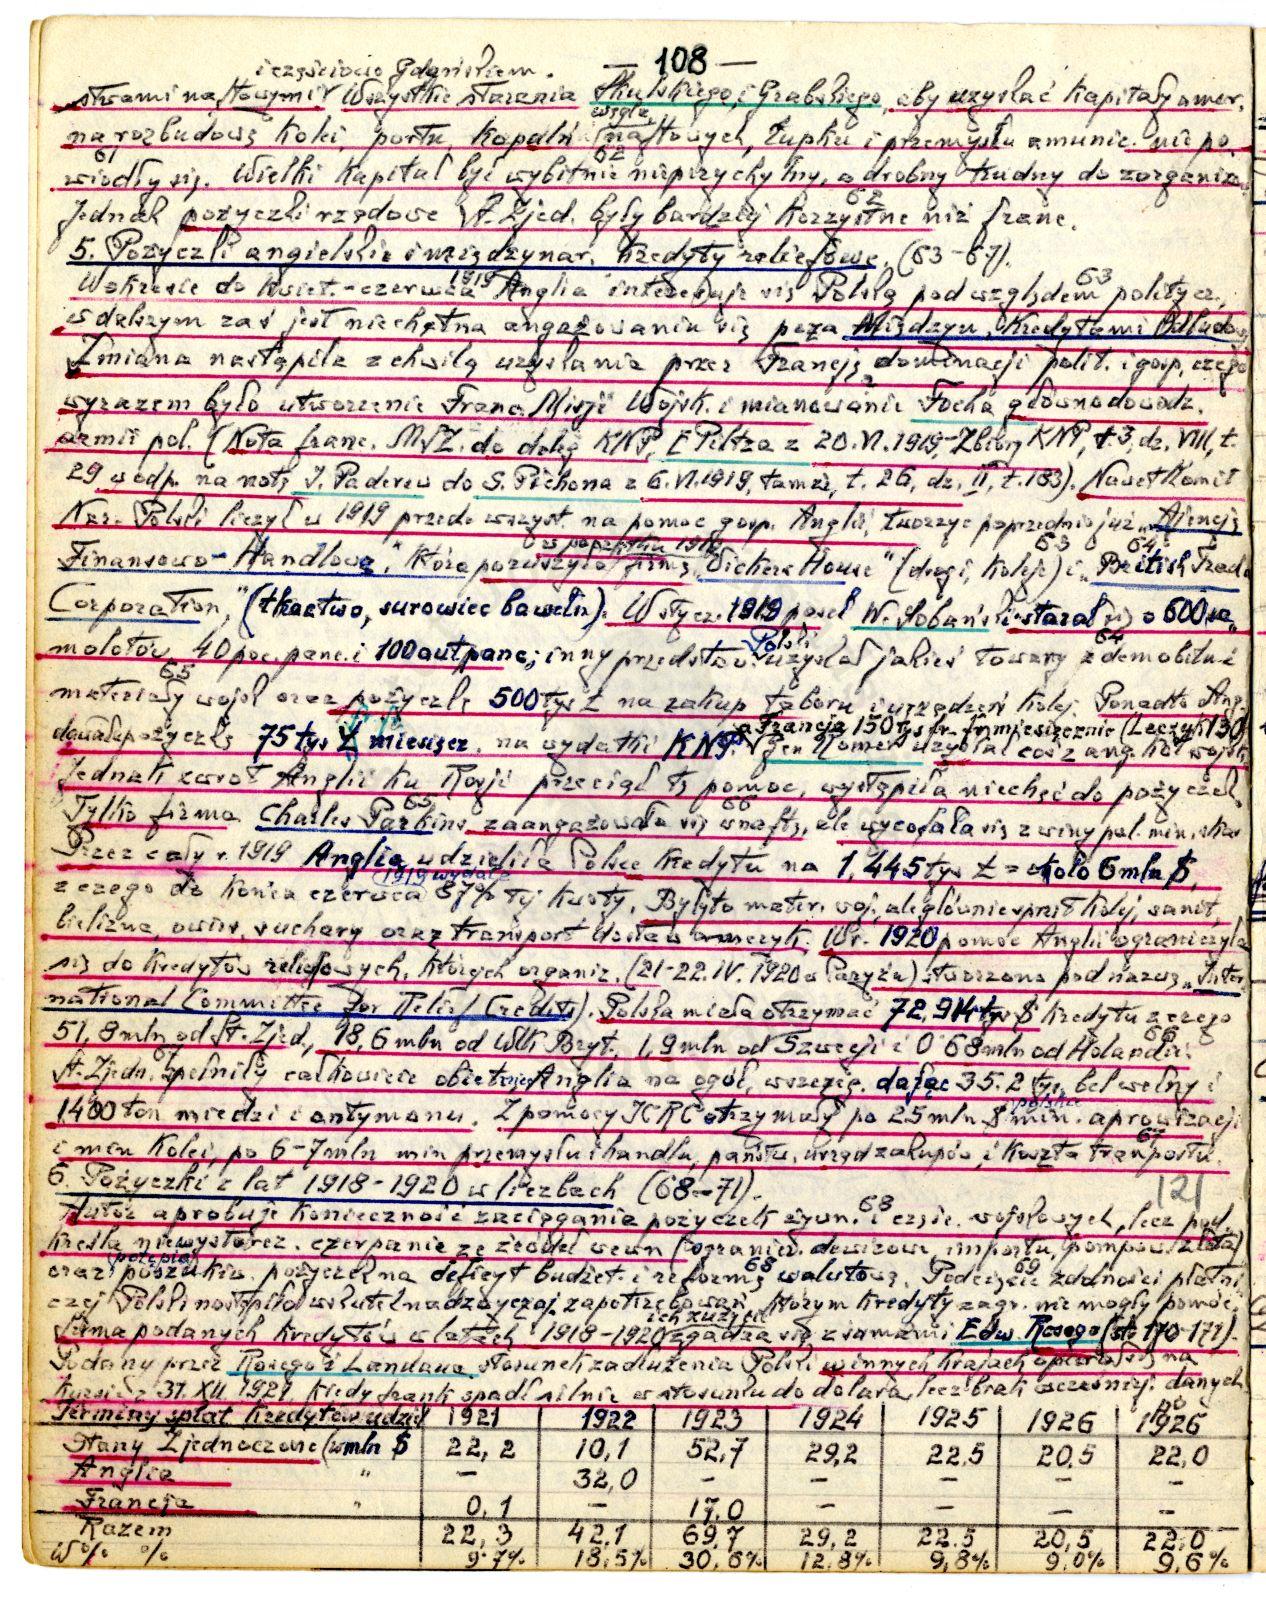 — 108 —
i częściowo Gdańskiem.
stwami naftowymi Wszystkie starania Skulskiego i Grabskiego, aby uzyskać kapitały amer.
na rozbudowę kolei, portu, kopalń naftowych, łupku i przemysłu amunic. nie po
61 62
wiodły się. Wielki kapitał był wybitnie nieprzychylny, a drobny trudny do zorganiz.
62
Jednak pożyczki rządowe St. Zjed. były bardziej korzystne niż franc.
5. Pożyczki angielskie i międzynar. kredyty reliefowe. (63-67).
1919 63
W okresie do kwiet.-czerwca Anglia interesuje się Polską pod względem politycz.,
w dalszym zaś jest niechętna angażowaniu się poza Międzyn. Kredytami Odbudowy
Zmiana nastąpiła z chwilą uzyskania przez Francję dominacji polit. i gosp., czego
wyrazem było utworzenie Franc. Misji Wojsk. i mianowanie Focha głównodowodz.
armii pol. (Nota franc. MSZ. do deleg KNP, E Piltza z 20.VI.1919-Zbiory KNP, t. 3, dz. VIII, t.
29 w odp. na notę J. Paderew do S. Pichona z 6.VI.1919, tamże, t. 26, dz. II, t. 183). Nawet Komit
Nar. Polski liczył w 1919 przede wszyst. na pomoc gosp. Anglii, tworząc poprzednio już "Ajencję
w początku 1919 63 64
Finansowo-Handlową", która poruszyła firmę "Vickers House" (drogi, koleje) i "British Trade
Corporation," (tkactwo, surowiec bawełn). W stycz. 1919 poseł W. Sobański starał się o 600 sa
Polski 64
molotów 40 poc. panc. i 100 aut panc; inny przedstaw. uzyskał jakieś towary z demobilu i
65
materiały wojsk oraz pożyczkę 500 tys £ na zakup taboru i urządzeń kolej. Ponadto Ang.
a Francja 150 tys fr. fr. miesięcznie (Leczyk 130)
dawała pożyczkę 75 tys £ miesięcz. na wydatki KNP. gen Romer uzyskał coś z ang. kół wojsk.
Jednak zwrot Anglii ku Rosji przeciął tę pomoc, wystąpiła niechęć do pożyczek.
65 66
Tylko firma Charles Parkins zaangażowała się w naftę, ale wycofała się z winy pol. min. skar
Przez cały r. 1919 Anglia udzieliła Polsce kredytu na 1,445 tys £ = około 6 mln $,
1919 wydała
z czego do końca czerwca 87% tej kwoty. Był to mater. woj. ale głównie sprzęt kolej, sanit,
bielizna, owies, suchary oraz transport dostaw ameryk. W r. 1920 pomoc Anglii ograniczyła
się do kredytów reliefowych, których organiz. (21-22.IV. 1920 w Paryżu) stworzono pod nazwą "Inter
national Committee for Relief Credits). Polska miała otrzymać 72,914 tys $ kredytu z czego
66
51,8 mln od St. Zjed., 18,6 mln od Wlk Bryt., 1,9 mln od Szwecji i 0'68 mln od Holandii.
67
St. Zjedn. spełniły całkowicie obietnicę Anglia na ogół, wszczęg. dając 35.2 tys. bel wełny i
polska
1400 ton miedzi i antymonu. Z pomocy ICRC otrzymały po 25 mln $ min. aprowizacji
67
i min Kolei, po 6-7 mln min przemysłu i handlu, państw. urząd zakupów, i koszta transportu.
6. Pożyczki z lat 1918-1920 w liczbach (68-71).
121
68
Autor aprobuje konieczność zaciągania pożyczek żywn. i częśc. wojskowych, lecz pod
kreśla niewystarcz. czerpanie ze źródeł wewn (ogranicz. dewizowe, importu, pompow. złota)
potępia 68 69
oraz poszukiw. pożyczek na deficyt budżet. i reformę walutową. Podcięcie zdolności płatni
czej Polski nastąpiło wskutek nadzwyczaj. zapotrzebowań którym kredyty zagr. nie mogły pomóc.
ich zużycie
Suma podanych kredytów w latach 1918-1920 zgadza się z sumami Edw. Rosego (str 170-171).
Podany przez Rosego i Landaua stosunek zadłużenia Polski w innych krajach oparł się na
kursie z 31.XII 1921, kiedy frank spadł silnie w stosunku do dolara, lecz brak wcześniej. danych
Terminy spłat kredytów udziel 1921 1922 1923 1924 1925 1926 po 1926
Stany Zjednoczone (w mln $ 22,2 10,1 52,7 29,2 22,5 20,5 22,0
Anglia " — 32,0 — — — — —
Francja " 0,1 — 17,0 — — — —
Razem 22,3 42,1 69,7 29,2 22,5 20,5 22,0
W % % 9.7% 18,5% 30,6% 12,8% 9,8% 9,0% 9,6%